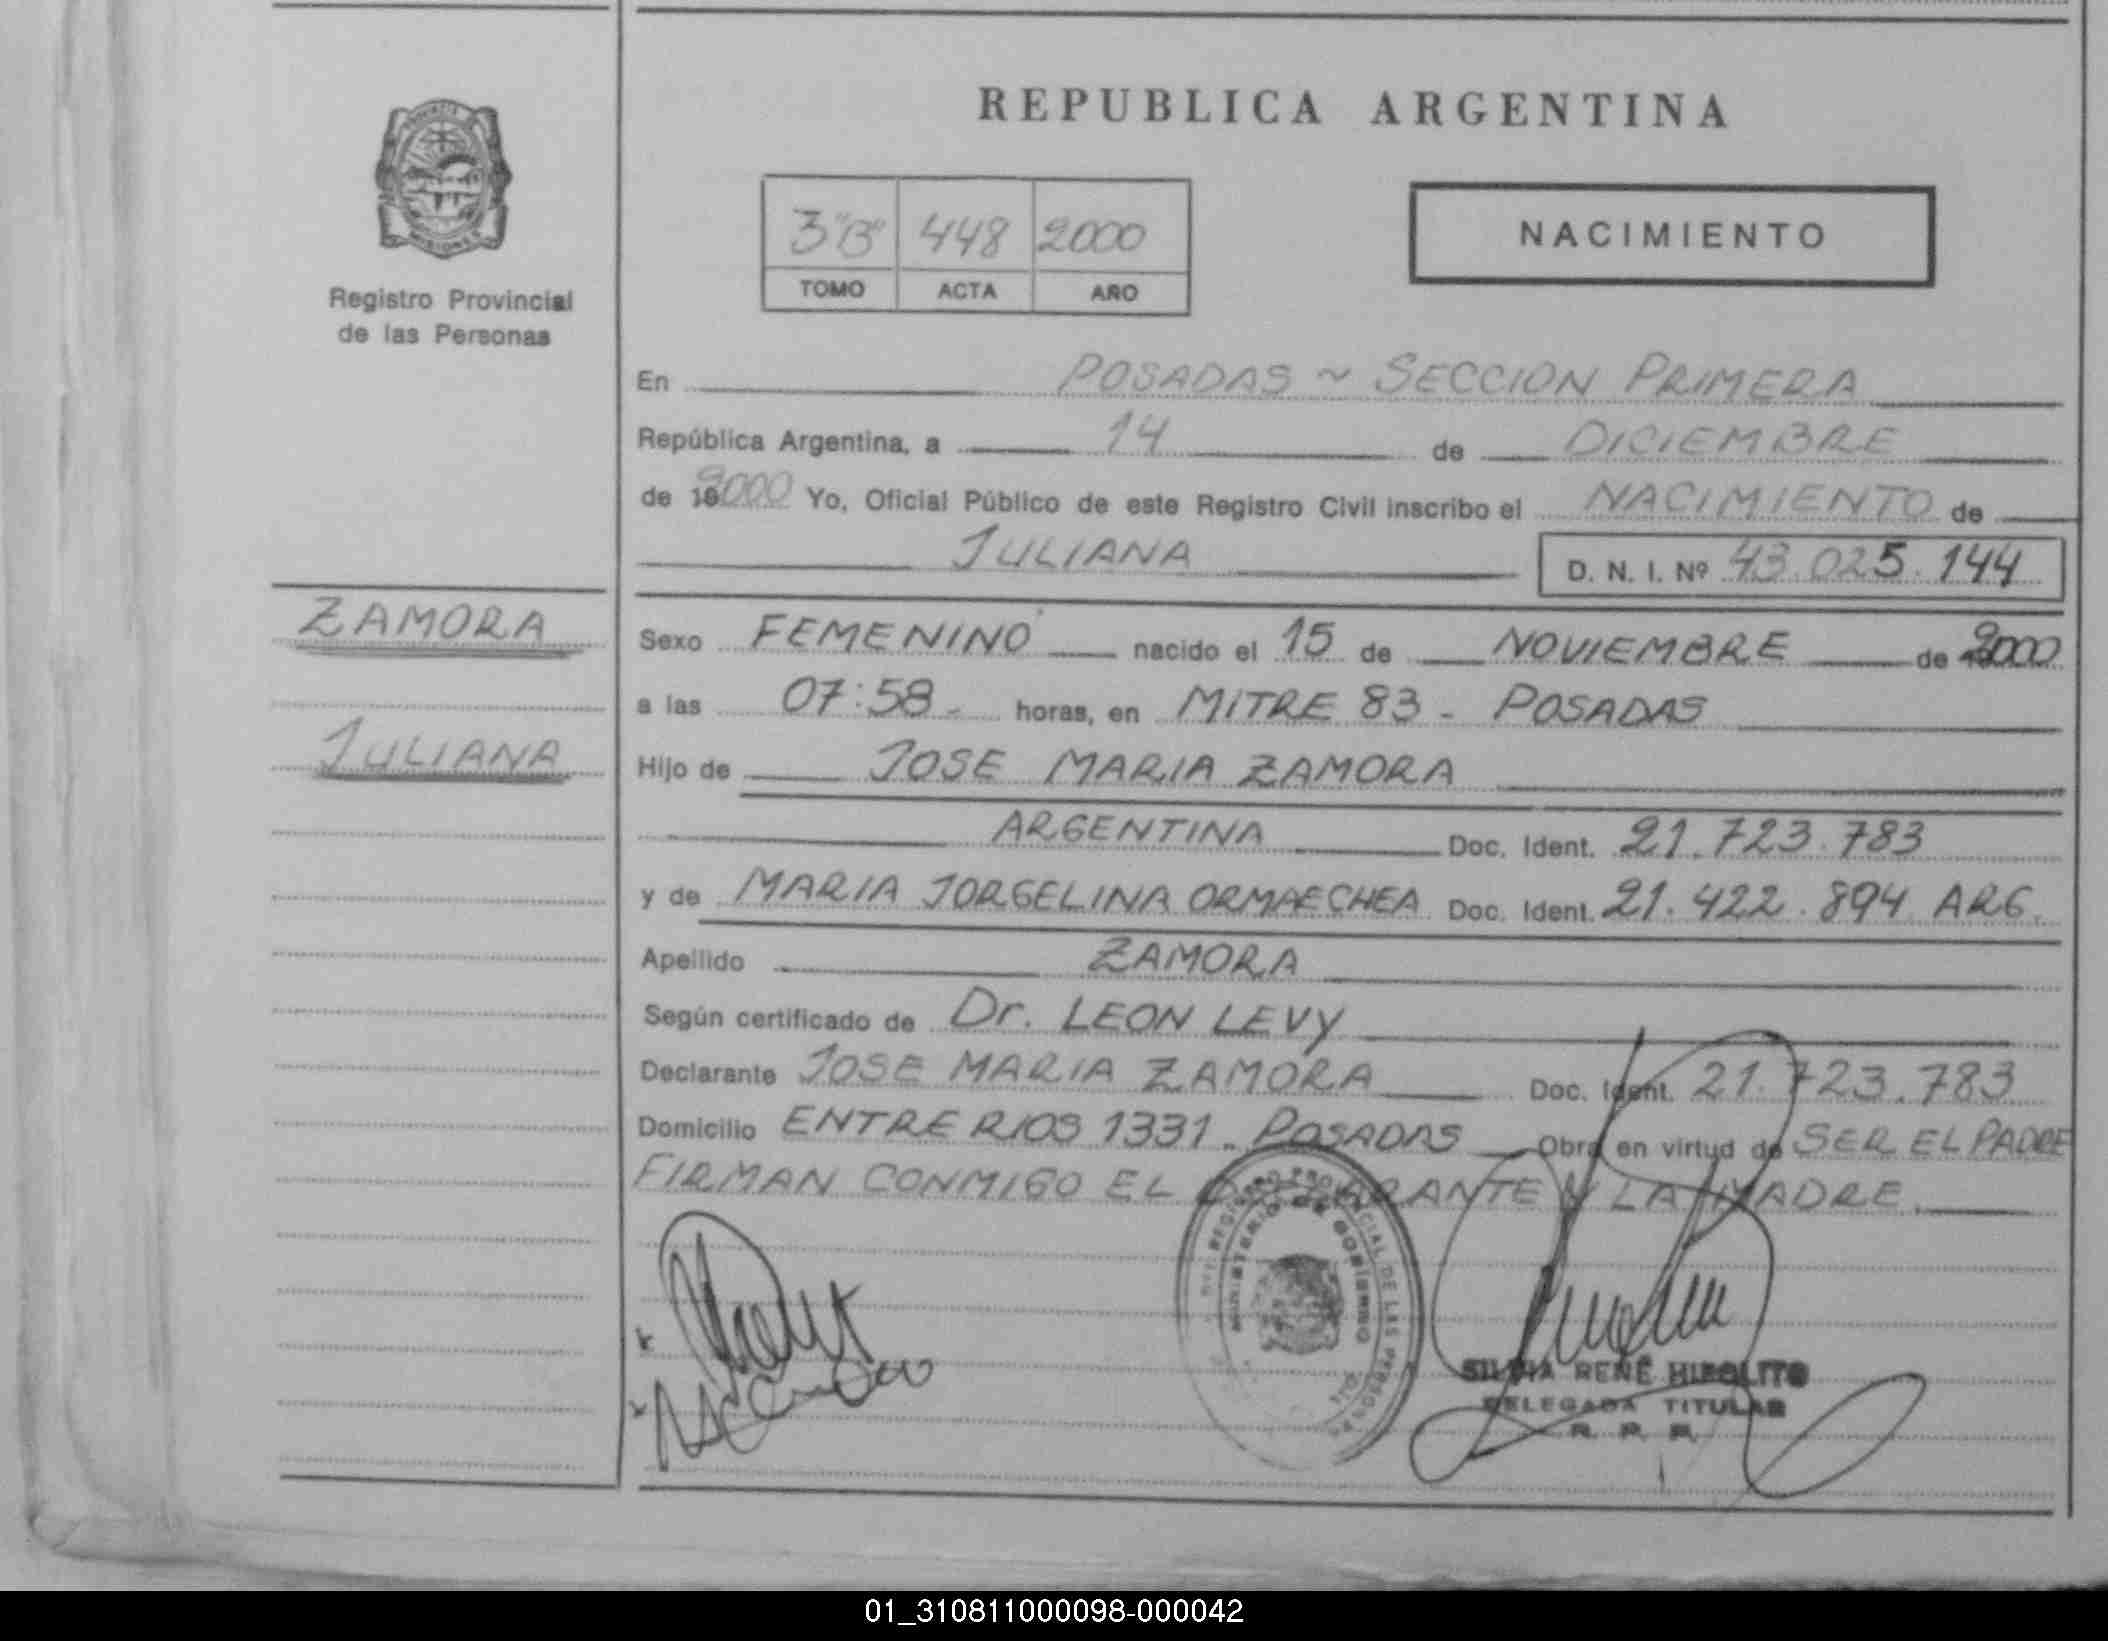 REPUBLICA ARGENTINA
PROVINCIA
MISIONES
Registro Provincial
de las Personas
3 "B" 448 2000
TOMO ACTA AÑO
NACIMIENTO
En POSADAS ~ SECCION PRIMERA
República Argentina, a 14 de DICIEMBRE
de 2000 Yo, Oficial Público de este Registro Civil inscribo el NACIMIENTO de
JULIANA D. N. I. Nº 43.025.144
ZAMORA
JULIANA
Sexo FEMENINO nacido el 15 de NOVIEMBRE de 2000
a las 07:58 - horas, en MITRE 83 - POSADAS
Hijo de JOSE MARIA ZAMORA
ARGENTINA Doc. Ident. 21.723.783
y de MARIA JORGELINA ORMAECHEA Doc. Ident. 21.422.894 ARG.
Apellido ZAMORA
Según certificado de Dr. LEON LEVY
Declarante JOSE MARIA ZAMORA Doc. Ident. 21.723.783
Domicilio ENTRE RIOS 1331 - POSADAS Obra en virtud de SER EL PADRE
FIRMAN CONMIGO EL DECLARANTE Y LA MADRE.
REGISTRO PROVINCIAL DE LAS PERSONAS
MINISTERIO DE GOBIERNO
SILVIA RENÉ HIPOLITO
DELEGADA TITULAR
R. P. P.
01_310811000098-000042